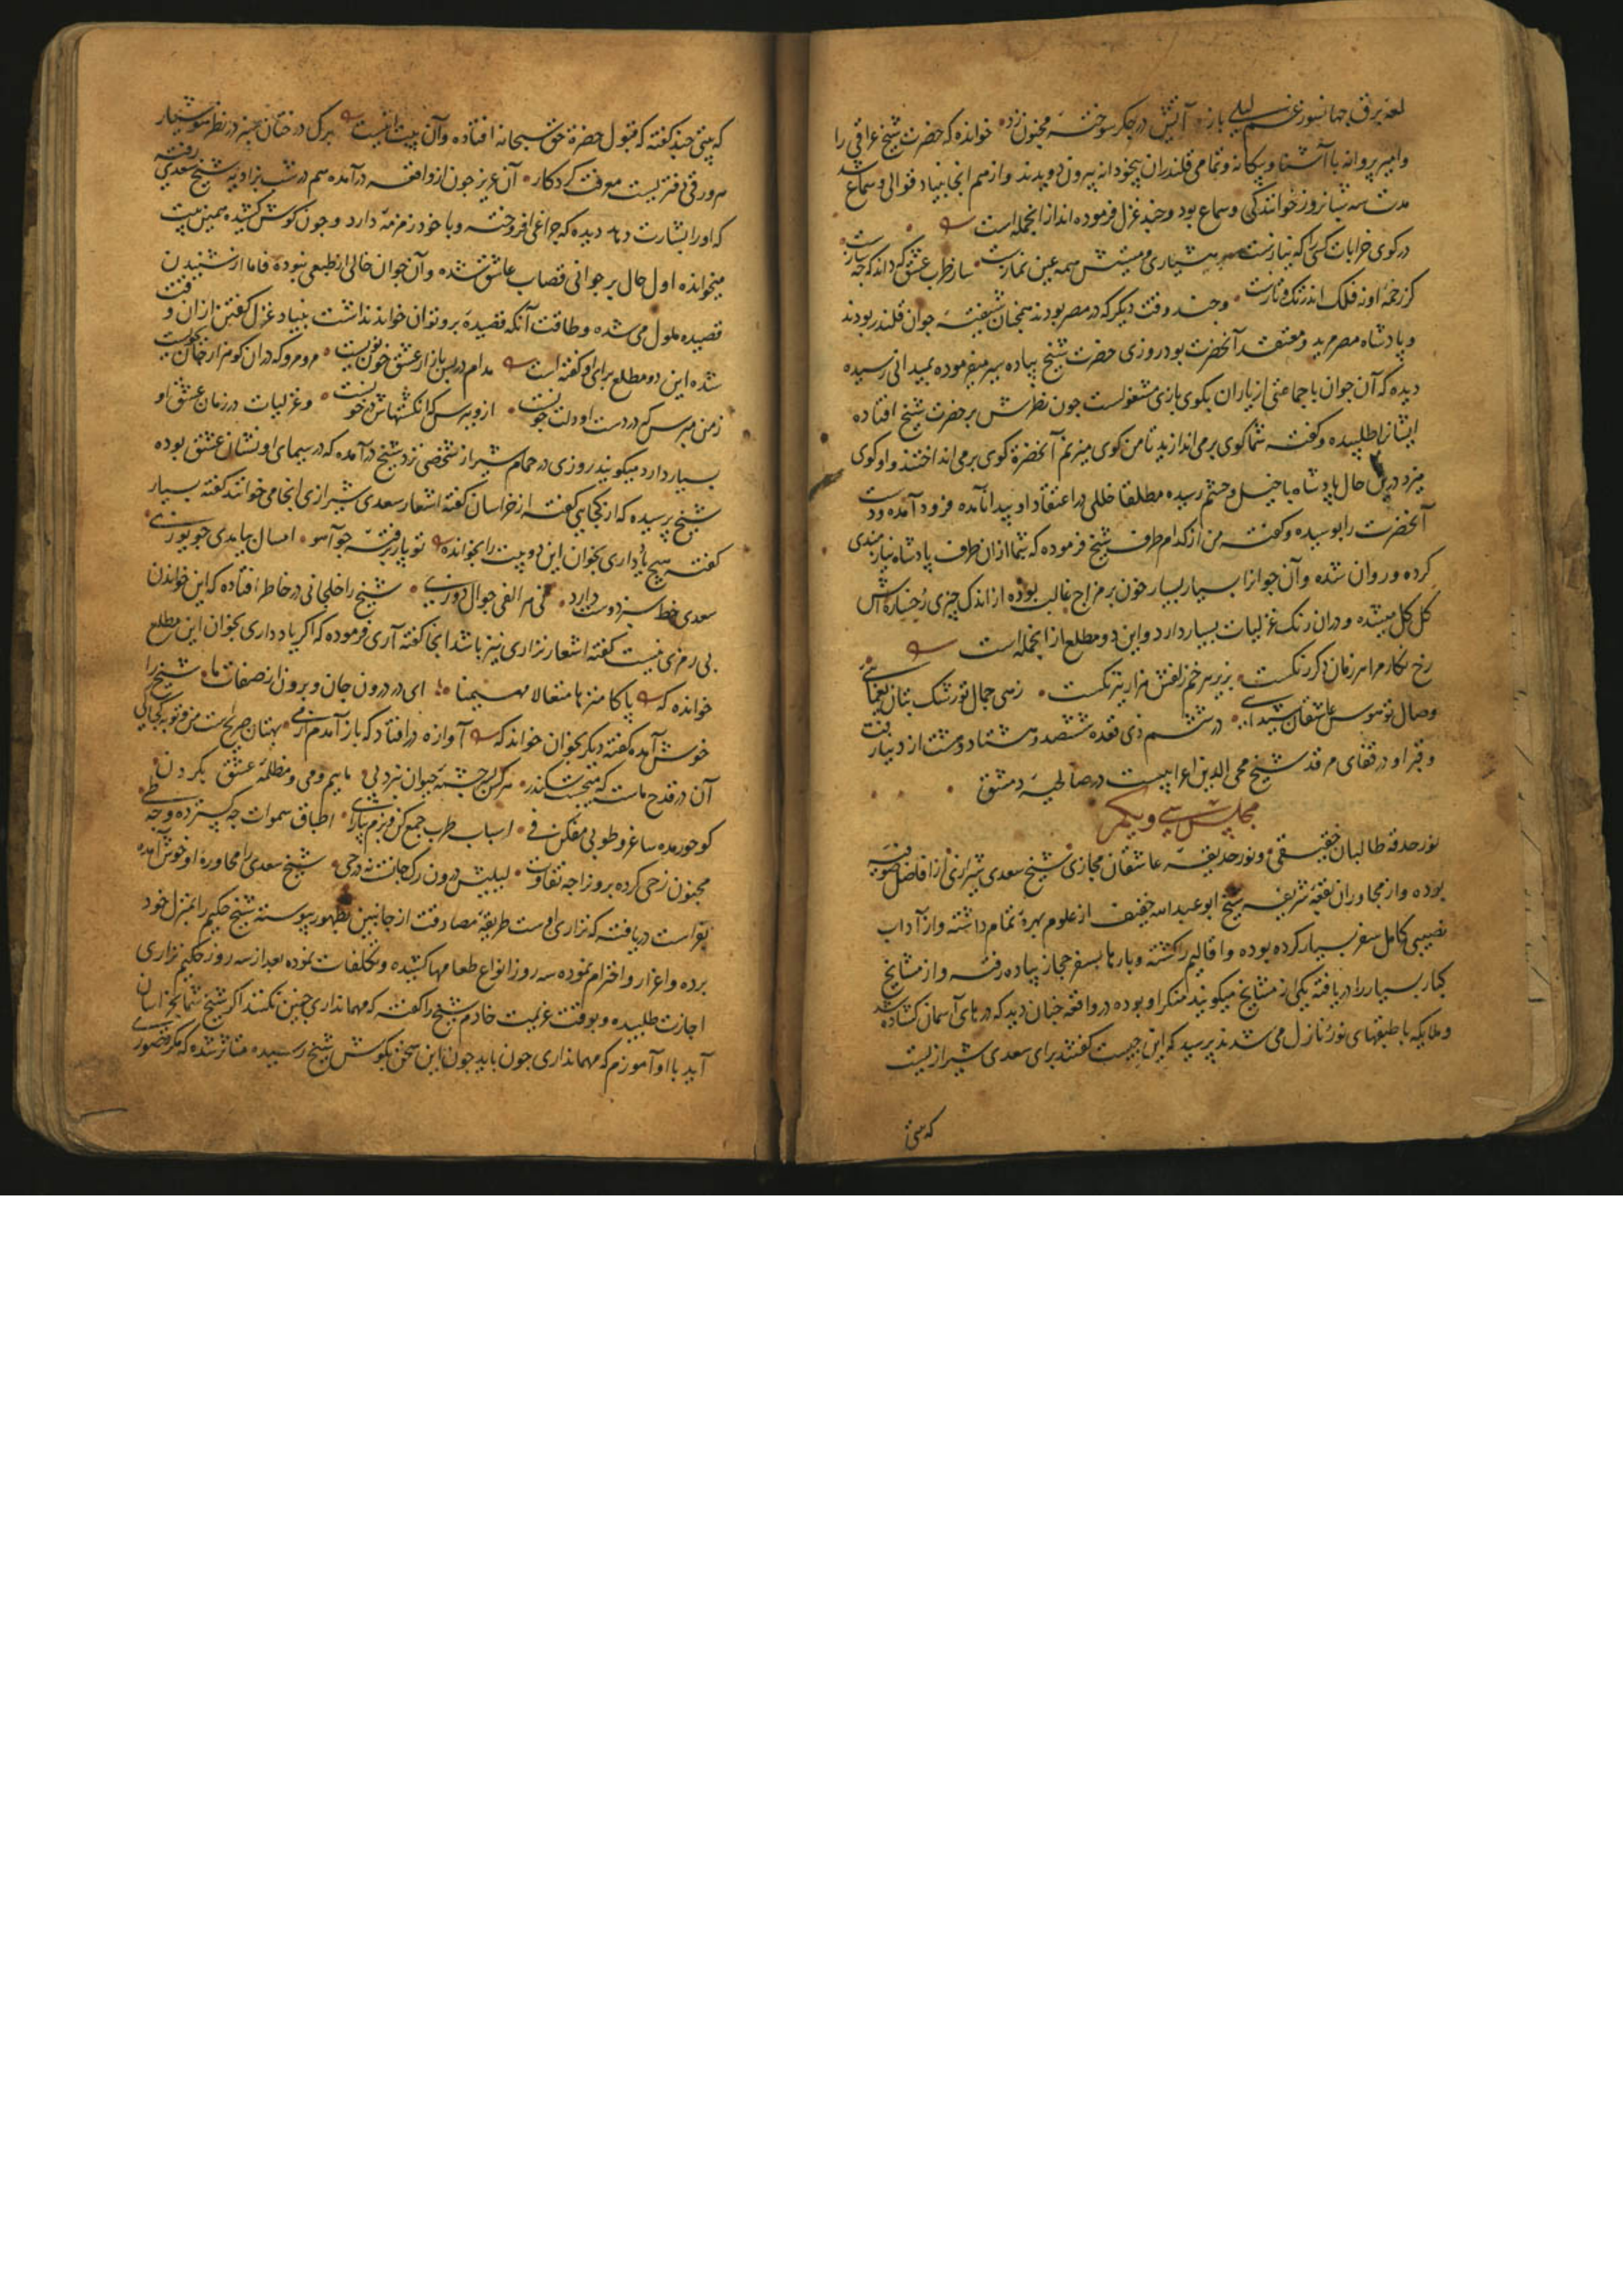 لمعهٔ برق جهانسوز غم لیلی باز • آتش در جگر سوختهٔ مجنون زد • خوانده که حضرت شیخ عراقی را
وامیر پروانه با آشنا و بیکانه و تمامی قلندران بیخودانه بیرون دویدند و از هم انجا بنیاد قوالی و سماع شد
مدت سه شبانروز خوانندکی و سماع بود و چند غزل فرموده اند از انجمله است
در کوی خرابات کسی را که نیازست هشیاری و مستیش همه عین نمازست • ساز طرب عشق که داند که چه سازست
کز زخمهٔ او نه فلک اندر تک و تازست • و چند وقت دیکر که در مصر بودند همچنان شیفتهٔ جوان قلندر بودند
و پادشاه مصر مرید و معتقد آنحضرت بود روزی حضرت شیخ پیاده سیر میفرموده بمیدانی رسیده
دیده که آن جوان با جماعتی از یاران بکوی بازی مشغولست چون نظرش بر حضرت شیخ افتاده
ایشانرا طلبیده و کفته شما کوی برمی اندازید تا من کوی میزنم آنحضرة کوی برمی انداختند و او کوی
میزد درین حال پادشاه با خیل و حشم رسیده مطلقا خللی در اعتقاد او پیدا نامده فرود آمده و دست
آنحضرت را بوسیده و کفته من از کدام طرف شیخ فرموده که شما ازان طرف پادشاه نیازمندی
کرده و روان شده و آن جوانرا بسیار بسیار خون بر مزاج غالب بوده از اندک چیزی رخساره اش
کل کل میشده و دران رنک غزلیات بسیار دارد و این دو مطلع از انجمله است
رخ نکار مرا هر زمان دکر رنکست • بزیر هر خم زلفش هزار نیرنکست • زهی جمال تو رشک بتان یغمائی
وصال تو هوس عاشقان شیدائی • در هشتم ذی قعده ششصد و هشتاد و هشت از دنیا رفت
و قبر او در قفای مرقد شیخ محی الدین اعرابیست در صالحیهٔ دمشق
مجلس سی و یکم
نور حدقهٔ طالبان حقیقی و نور حدیقهٔ عاشقان مجازی شیخ سعدی شیرازی از افاضل صوفیه
بوده و از مجاوران بقعهٔ شریفه شیخ ابو عبدالله خفیف از علوم بهرهٔ تمام داشته و از آداب
نصیبی کامل سفر بسیار کرده بوده و اقالیم را کشته و بارها بسفر حجاز پیاده رفته و از مشایخ
کبار بسیار را دریافته یکی از مشایخ میکویند منکر او بوده در واقعه چنان دید که درهای آسمان کشاده شد
و ملایکه با طبقهای نور نازل می شدند پرسید که این چیست کفتند برای سعدی شیرازیست
که بیتی
که بیتی چند کفته که قبول حضرة حق سبحانه افتاده و آن بیت اینست برک درختان سبز در نظر هوشیار
هر ورقی دفتریست معرفت کردکار • آن عزیز چون از واقعه درآمده هم در شب بزاویه شیخ سعدی رفته
که او را بشارت دهد دیده که چراغی افروخته و با خود زمزمهٔ دارد و چون کوش کشیده همین بیت
میخوانده اول حال بر جوانی قصاب عاشق شده و آن جوان خالی از طبعی نبوده فاما از شنیدن
قصیده ملول می شده و طاقت آنکه قصیدهٔ برو توان خواند نداشت بنیاد غزل کفتن ازان وقت
شده این دو مطلع برای او کفته است مدام درین بازار عشق خون ریست • مرو مرو که دران کو هزار جانکویست
زمن مپرس که در دست او دلت چونست • ازو بپرس که انکشتهاش در خونست • و غزلیات در زمان عشق او
بسیار دارد میکویند روزی در حمام شیراز شخصی نزد شیخ درآمده که در سیمای او نشان عشق بوده
شیخ پرسیده که از کجایی کفته از خراسان کفته اشعار سعدی شیرازی انجا می خوانند کفته بسیار
کفته هیچ یاد داری بخوان این دو بیت را بخوانده تو پار برفتهٔ چو آهو • امسال بیامدی چو یوزی •
سعدی خط سبز دوست دارد • نی هر الفی جوال دوزی • شیخ را خلجانی در خاطر افتاده که این خواندن
بی رمزی نیست کفته اشعار نزاری نیز باشد انجا کفته آری فرموده که اکر یاد داری بخوان این مطلع
خوانده که پاکا منزها متعالا مهیمنا • ای در درون جان و برون از صفات ما • شیخ را
خوش آمده کفته دیکر بخوان خواند که آوازه در افتاد که باز آمدم از می • بهتان صریحست من و توبه کجا کی
آن در قدح ماست که میجست سکندر • هرکز لب چشمهٔ حیوان نبرد پی • ماییم و می و مظلمهٔ عشق بکردن •
کو حور مده ساغر و طوبی مفکن فی • اسباب طرب جمع کن و بزم بیارای • اطباق سموات چه کسترده و چه طی •
مجنون ز حی کرده برون را چه تفاوت • لیلیش درون رک جانست نه در حی • شیخ سعدی را محاورهٔ او خوش آمده
بفراست دریافته که نزاری اوست طریقهٔ مصادقت از جانبین بظهور پیوسته شیخ حکیم را بمنزل خود
برده و اعزاز و احترام نموده سه روز انواع طعامها کشیده و تکلفات نموده بعد از سه روز حکیم نزاری
اجازت طلبیده و بوقت عزیمت خادم شیخ را کفته که مهمانداری چنین نکنند اکر شیخ شما بخراسان
آید با او آموزم که مهمانداری چون باید چون این سخن بکوش شیخ رسیده متاثر شده که مکر قصوری